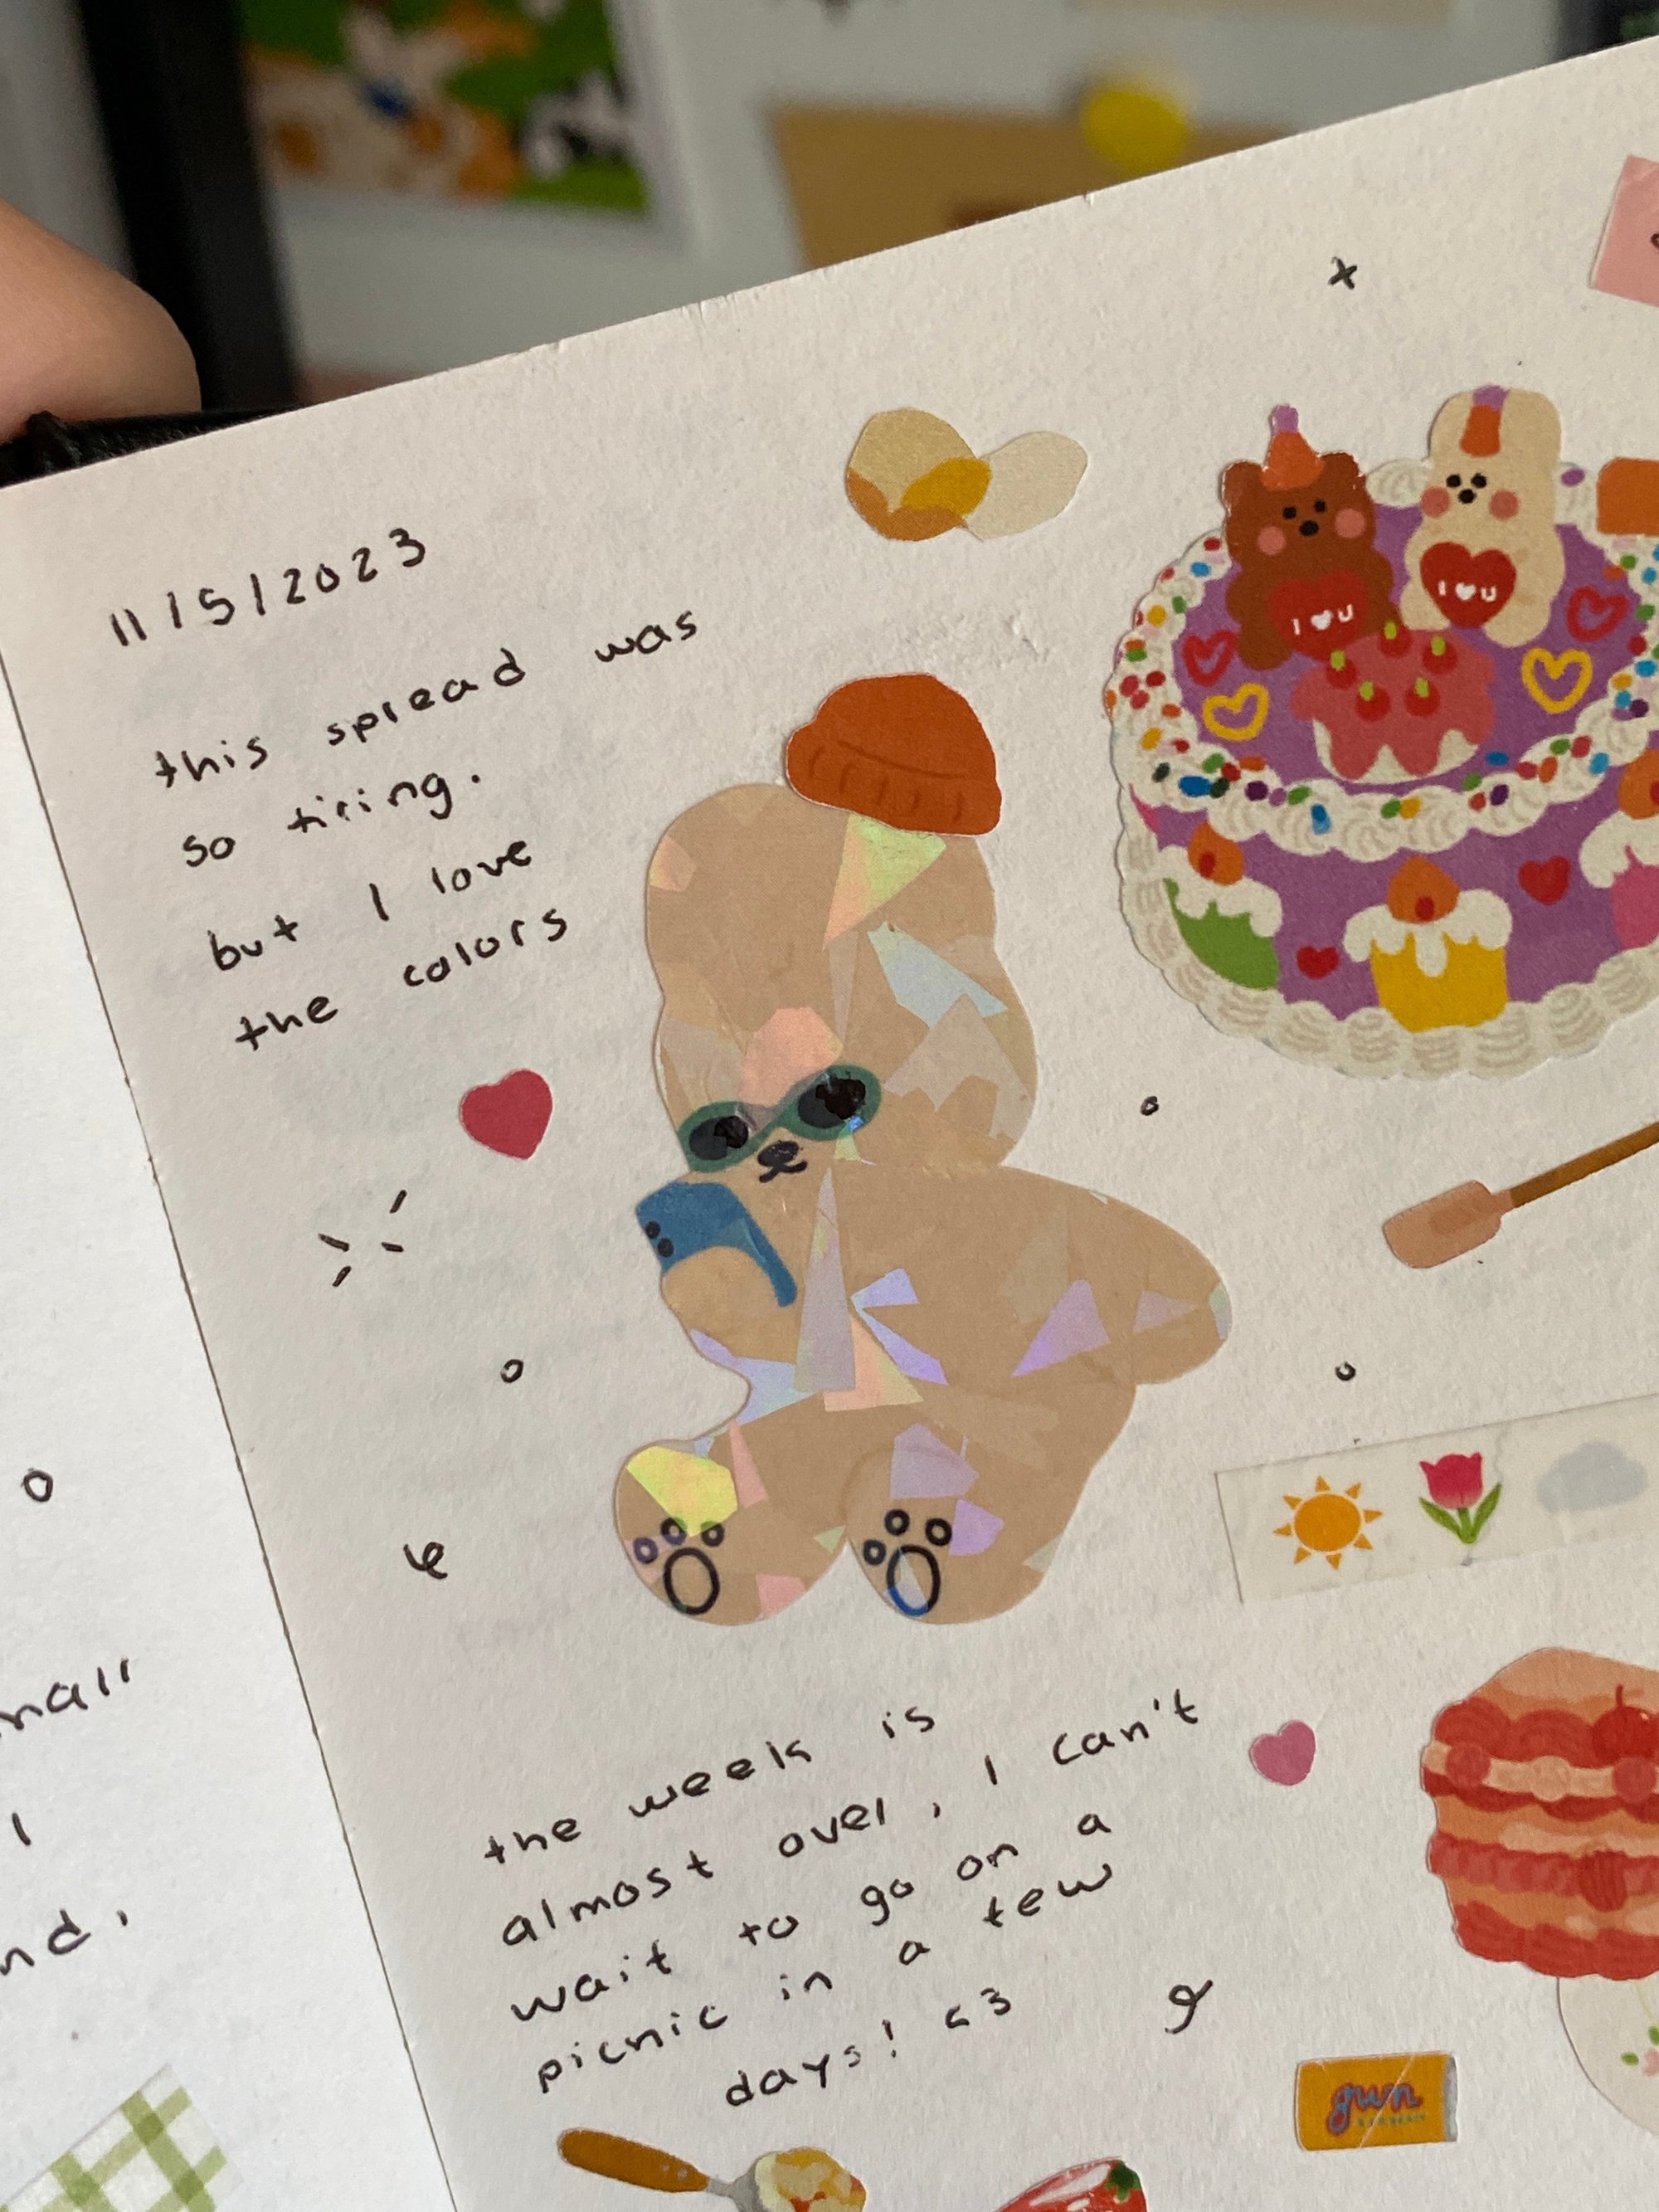 11/5/2023
this spread was
so tiring.
but I love
the colors
the week is
almost over, I can't
wait to go on a
picnic in a few
days! <3
I ♥ U
I ♥ U
nd.
gum